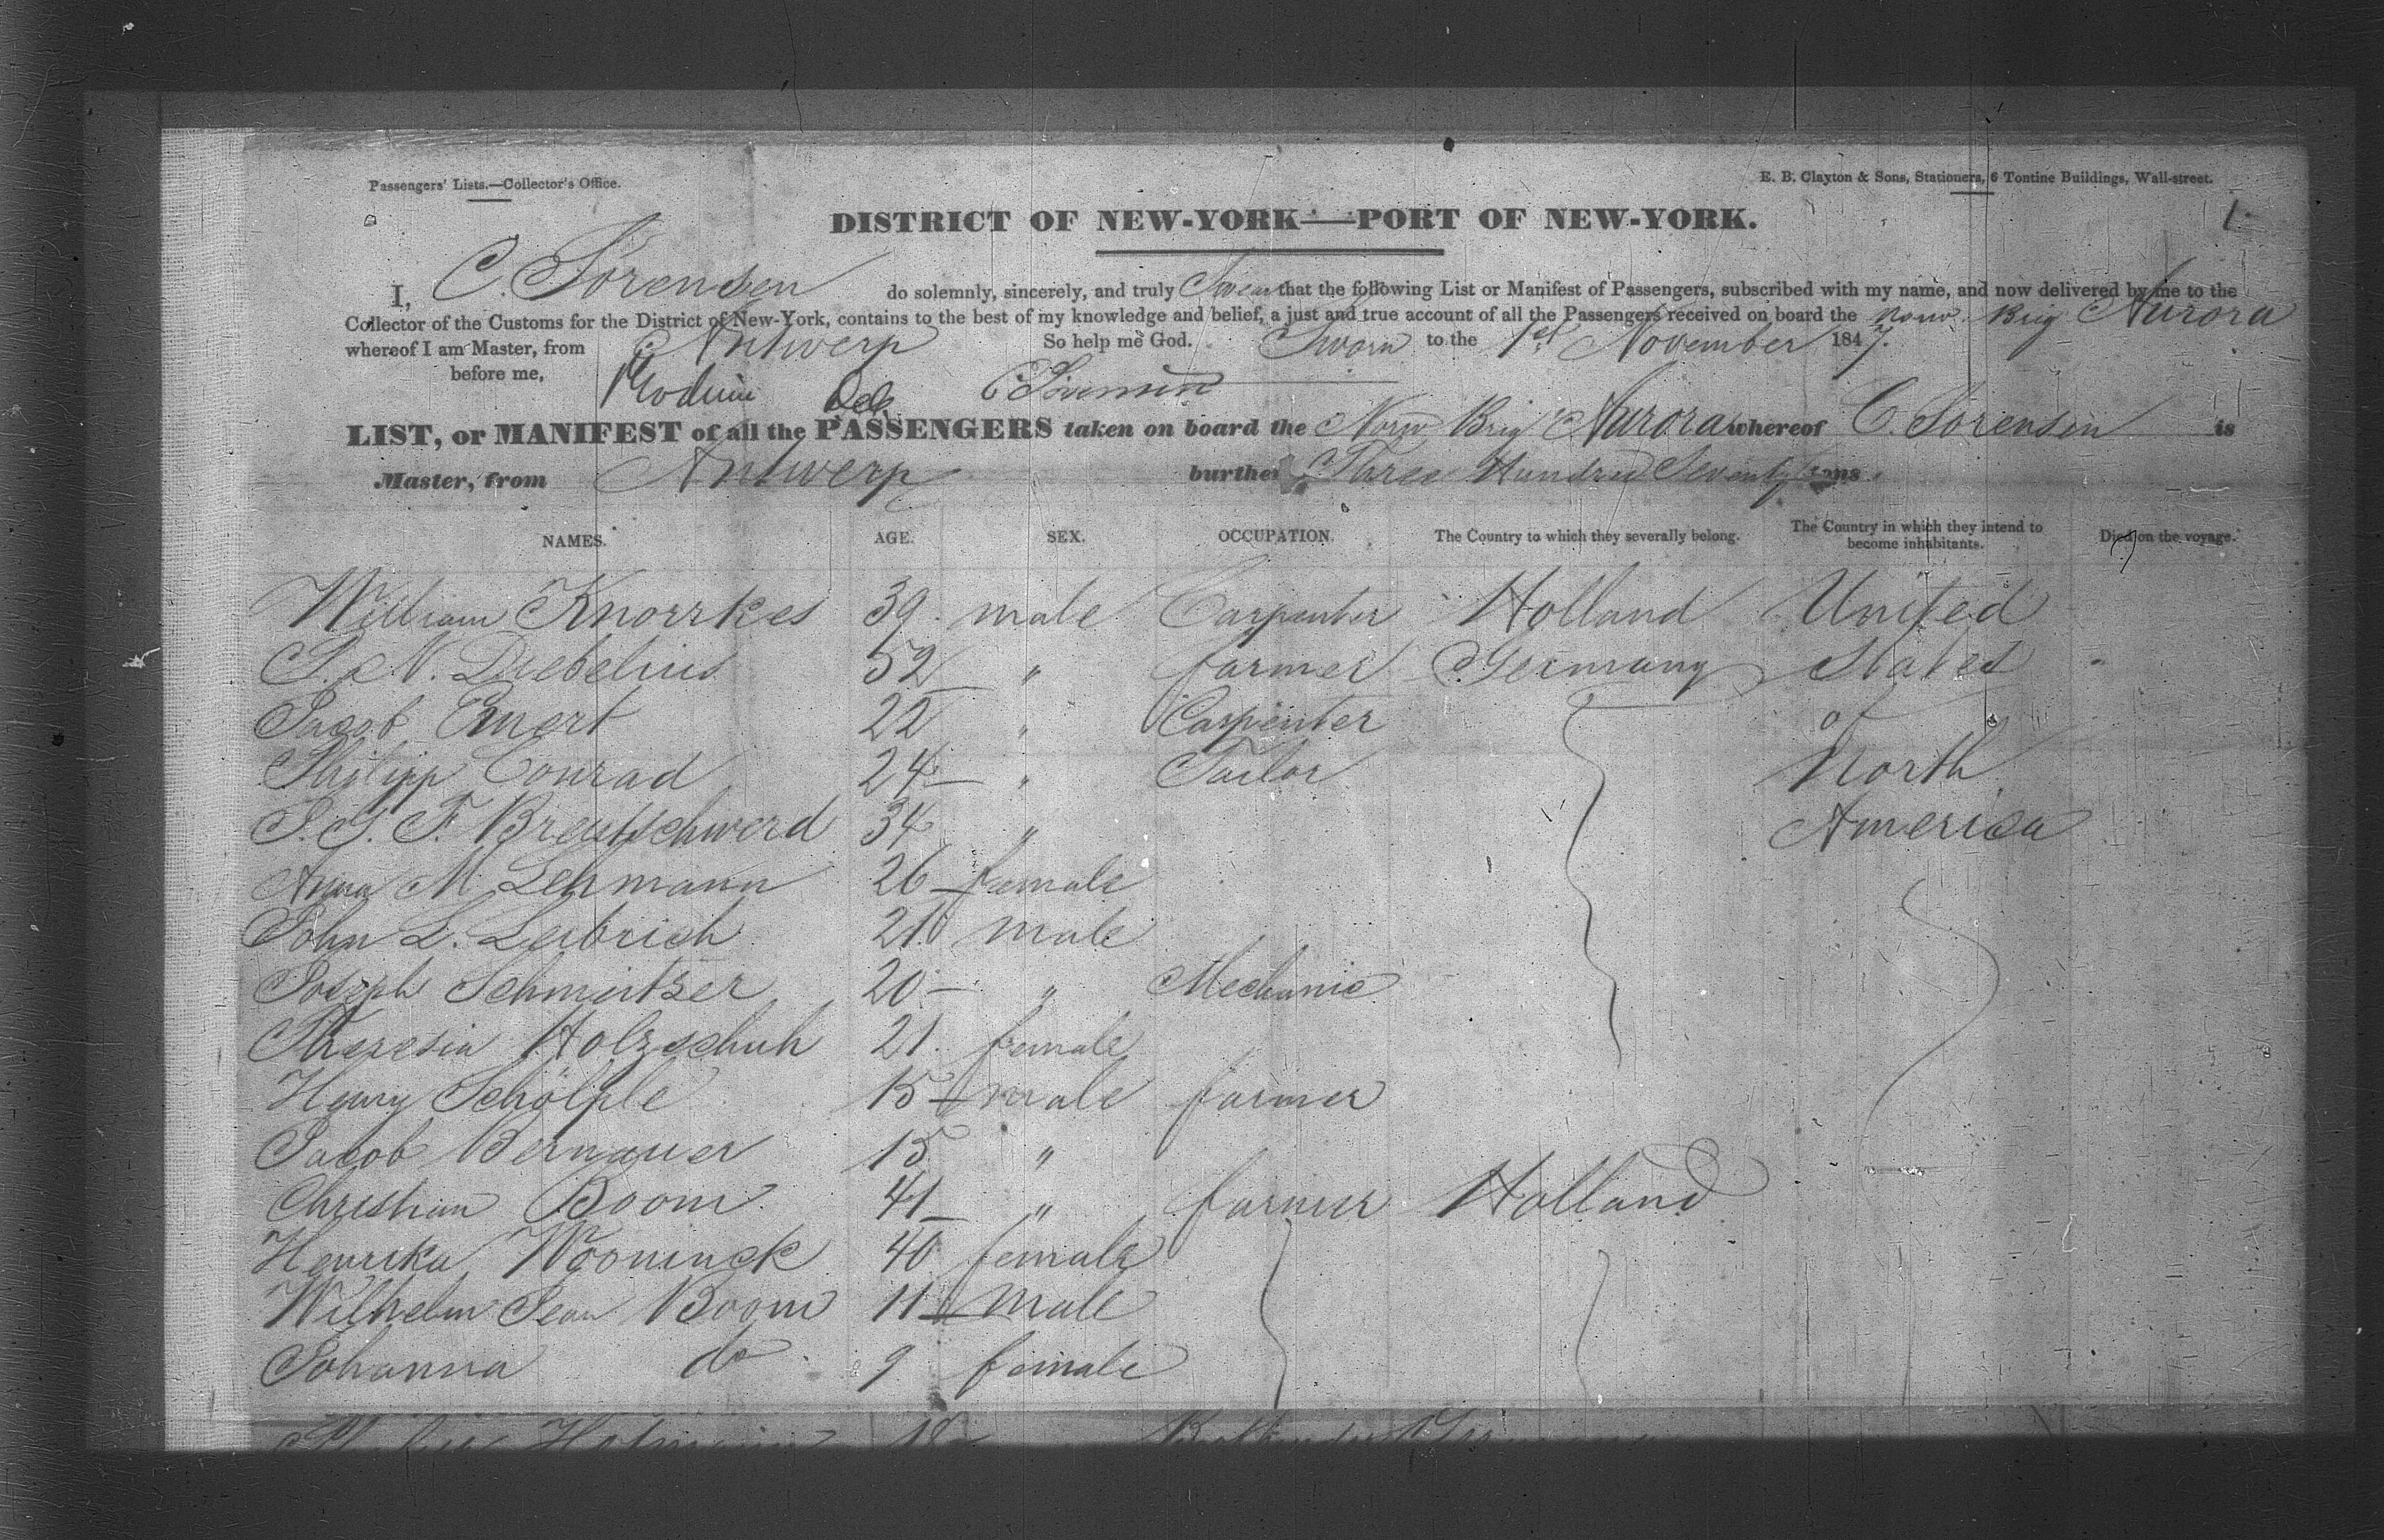 Passengers' Lists.—Collector's Office.
E. B. Clayton & Sons, Stationers, 6 Tontine Buildings, Wall-street.
1.
DISTRICT OF NEW-YORK—PORT OF NEW-YORK.
I, C. Sorensen do solemnly, sincerely, and truly Swear that the following List or Manifest of Passengers, subscribed with my name, and now delivered by me to the
Collector of the Customs for the District of New-York, contains to the best of my knowledge and belief, a just and true account of all the Passengers received on board the Norw. Brig Aurora
whereof I am Master, from Antwerp So help me God. Sworn to the 1st November 1847.
before me, C Sorensen
LIST, or MANIFEST of all the PASSENGERS taken on board the Norw Brig Aurora whereof C. Sorensen is
Master, from Antwerp burthen Three Hundred Seventy tons.
NAMES. AGE. SEX. OCCUPATION. The Country to which they severally belong. The Country in which they intend to become inhabitants. Died on the voyage.
William Knorrkes 39 male Carpenter Holland United
N. Diebelius 52 " farmer Germany States "
Jacob Emert 22 " Carpenter of
Philipp Conrad 24 " Tailor North
J. G. F. Breutschwerd 34 " America
Anna M Lehmann 26 female
John L. Leibrich 21 male
Joseph Schmeitzer 20 " Mechanic
Theresia Holzschuh 21 female
Henry Schölple 15 male farmer
Jacob Bernauer 15 "
Christian Boom 41 " farmer Holland
Henrika Wooninck 40 female
Wilhelm Jean Boom 11 male
Johanna do 9 female